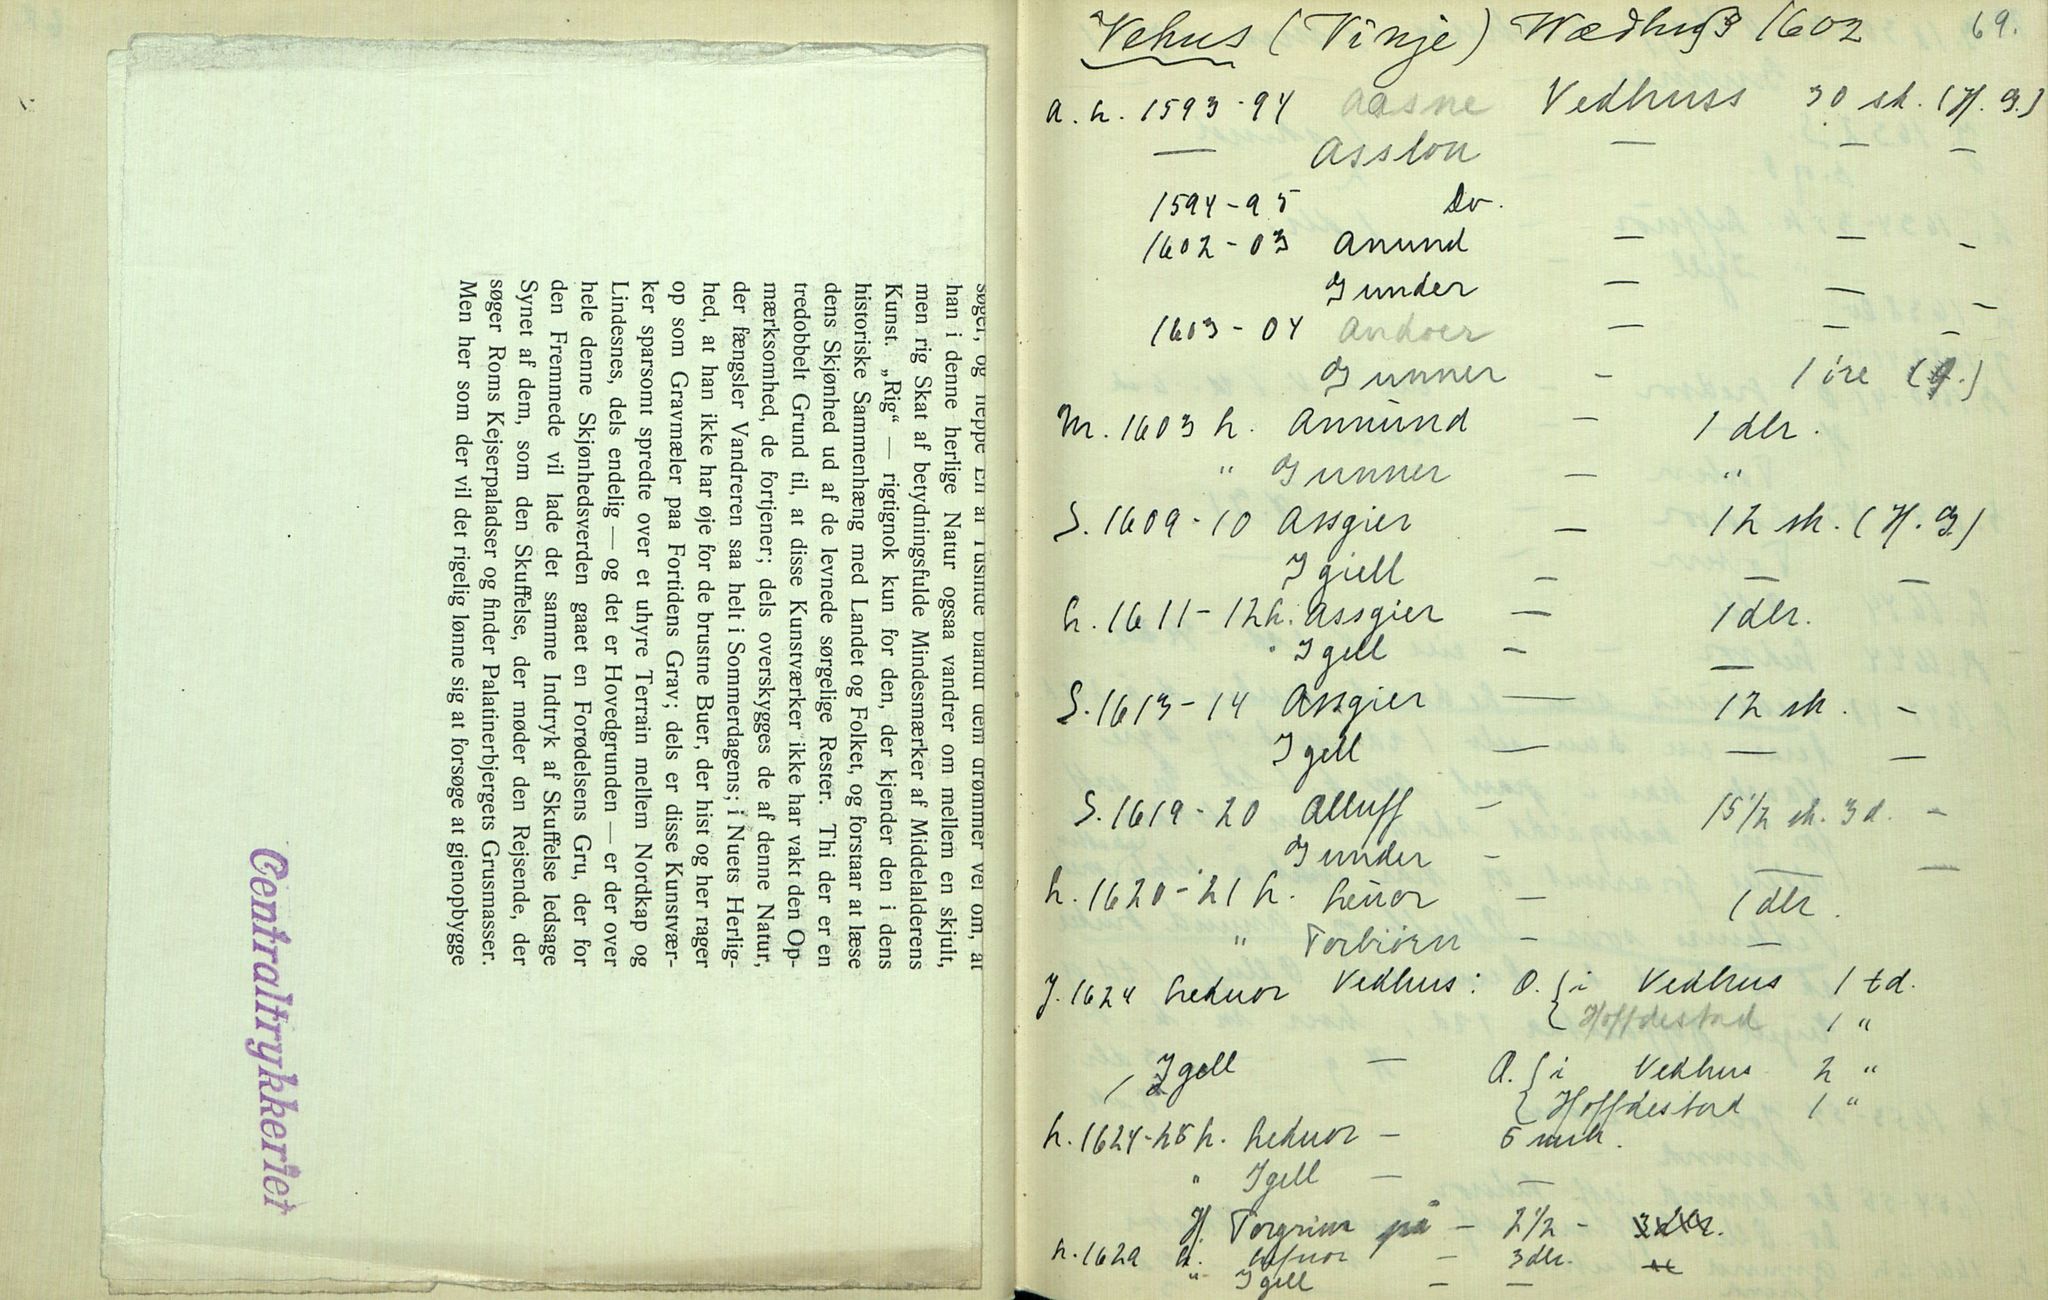 søger, og neppe En af Tusinde blandt dem drømmer vel om, at
han i denne herlige Natur ogsaa vandrer om mellem en skjult,
men rig Skat af betydningsfulde Mindesmærker af Middelalderens
Kunst. „Rig“ — rigtignok kun for den, der kjender den i dens
historiske Sammenhæng med Landet og Folket, og forstaar at læse
dens Skjønhed ud af de levnede sørgelige Rester. Thi der er en
tredobbelt Grund til, at disse Kunstværker ikke har vakt den Op-
mærksomhed, de fortjener; dels overskygges de af denne Natur,
der fængsler Vandreren saa helt i Sommerdagens; i Nuets Herlig-
hed, at han ikke har øje for de brustne Buer, der hist og her rager
op som Gravmæler paa Fortidens Grav; dels er disse Kunstvær-
ker sparsomt spredte over et uhyre Terrain mellem Nordkap og
Lindesnes, dels endelig — og det er Hovedgrunden — er der over
hele denne Skjønhedsverden gaaet en Forødelsens Gru, der for
den Fremmede vil lade det samme Indtryk af Skuffelse ledsage
Synet af dem, som den Skuffelse, der møder den Rejsende, der
søger Roms Kejserpaladser og finder Palatinerbjergets Grusmasser.
Men her som der vil det rigelig lønne sig at forsøge at gjenopbygge
Centraltrykkeriet
69.
Vehus (Vinje) Wædhuß 1602
a. L. 1593-94 Aasne Vedhuss 30 sk. (H. G.)
— Asslou — — —
1594-95 Do.
1602-03 Anund — — —
Gunder — — —
1603-04 Andoer — — —
Gunner — 1 öre
M. 1603 h. Anund — 1 dlr.
" Gunner — "
S. 1609-10 Assgier — 12 sk. (H. G)
Igiell — — —
L. 1611-12 h. Assgier — 1 dlr.
" Igell — —
S. 1613-14 Assgier — 12 sk. —
Igell — — —
S. 1619-20 Alluff — 15 1/2 sk. 3 d. —
Gunder — — —
L. 1620-21 h. Leuor — 1 dlr.
" Torbiörn — —
J. 1624 Leduor Vedhus: O. { i Vedhus 1 td.
{ Hoffdestad 1 "
Igell — O. { i Vedhus 2 "
{ Hoffdestad 1 "
L. 1624-25 h. Leduor — 5 mrk.
" Igell — —
H. Torgrim på — 2 1/2 —
L. 1629 h. Lefuor — 3 dlr.
" Igell — —